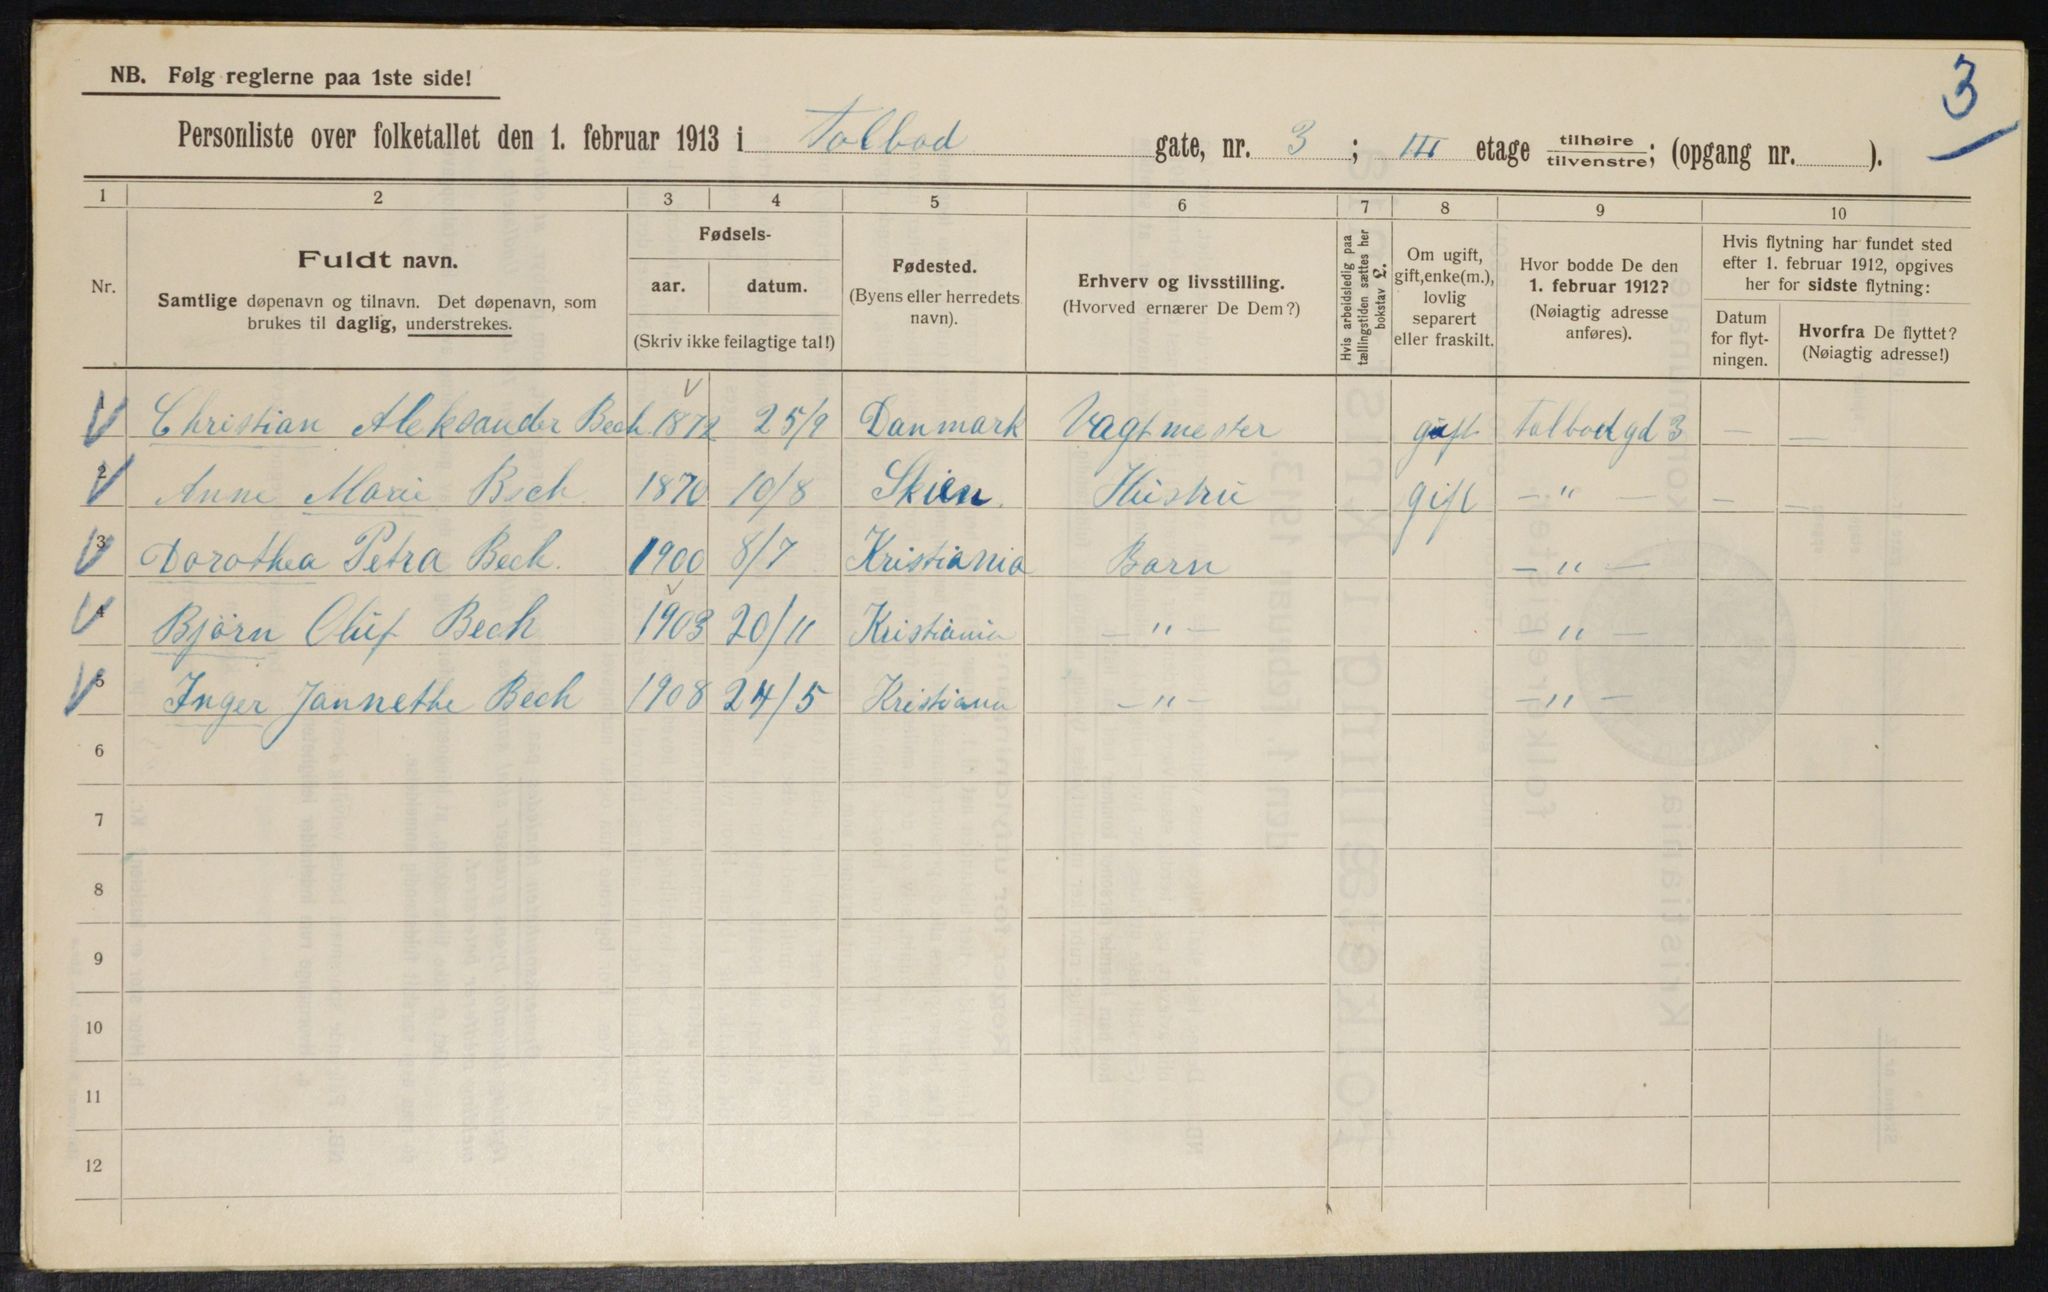 NB. Følg reglerne paa 1ste side!
3
Personliste over folketallet den 1. februar 1913 i Tolbod gate, nr. 3; III etage tilhøire/tilvenstre; (opgang nr. ).
1 2 3 4 5 6 7 8 9 10
Nr.
Fuldt navn.
Samtlige døpenavn og tilnavn. Det døpenavn, som
brukes til daglig, understrekes.
Fødsels-
aar. datum.
(Skriv ikke feilagtige tal!)
Fødested.
(Byens eller herredets
navn).
Erhverv og livsstilling.
(Hvorved ernærer De Dem?)
Hvis arbeidsledig paa
tællingstiden sættes her
bokstav L.
Om ugift,
gift, enke(m.),
lovlig
separert
eller fraskilt.
Hvor bodde De den
1. februar 1912?
(Nøiagtig adresse
anføres).
Hvis flytning har fundet sted
efter 1. februar 1912, opgives
her for sidste flytning:
Datum
for flyt-
ningen.
Hvorfra De flyttet?
(Nøiagtig adresse!)
1 Christian Aleksander Bech 1872 25/9 Danmark Vagtmester gift Tolbodgd 3 — —
2 Anne Marie Bech 1870 10/8 Skien. Hustru gift — " — — —
3 Dorothea Petra Bech. 1900 8/7 Kristiania Barn — " —
4 Bjørn Oluf Bech 1903 20/11 Kristiania — " — — " —
5 Inger Jannethe Bech 1908 24/5 Kristiania — " — — " —
6
7
8
9
10
11
12